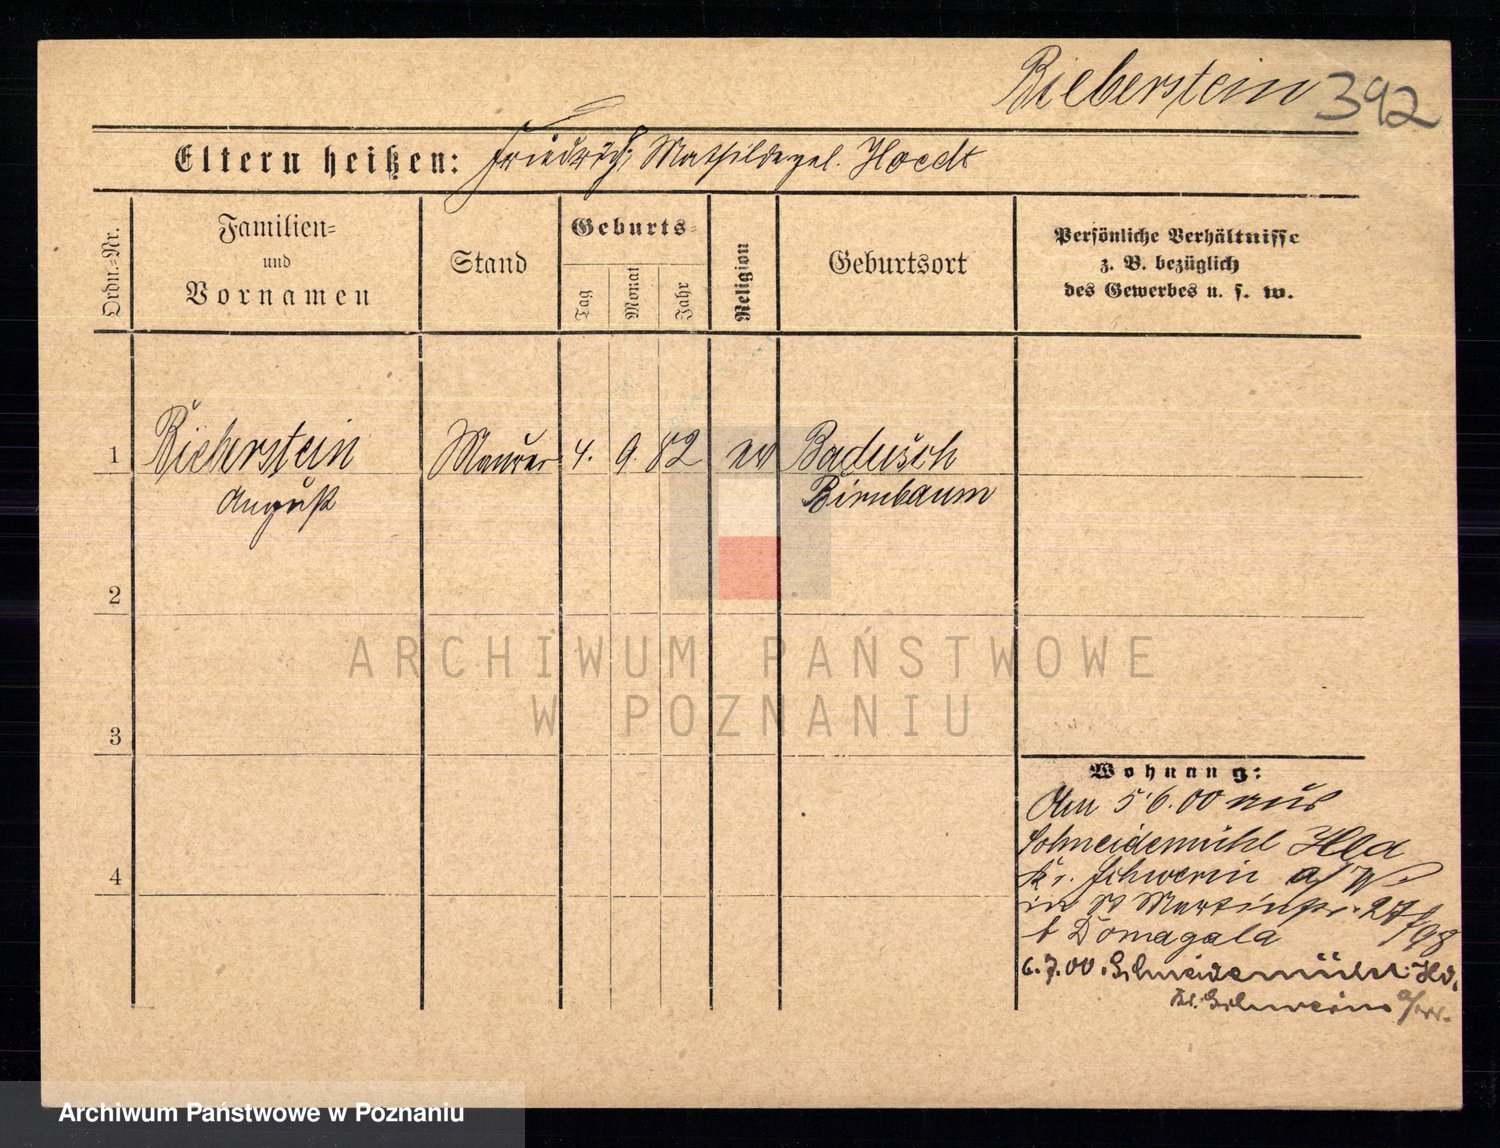 Bieberstein 392
Eltern heißen: Friedrich, Mathilde gel. Hoedt
Ordn.=Nr.
Familien=
und
Vornamen
Stand
Geburts=
Tag
Monat
Jahr
Religion
Geburtsort
Persönliche Verhältnisse
z. B. bezüglich
des Gewerbes u. s. w.
1 Bieberstein Maurer 4. 9 82 ev Badusch
August Birnbaum
2
3
4
Wohnung:
Am 5.6.00 aus
Schneidemühl Hld
Kr. Schwerin a/W
in St Martinstr. 27
b Domagala /98
6.7.00. Schneidemühl. Hd.
Kr. Schwerin a/W.
ARCHIWUM PAŃSTWOWE
W POZNANIU
Archiwum Państwowe w Poznaniu